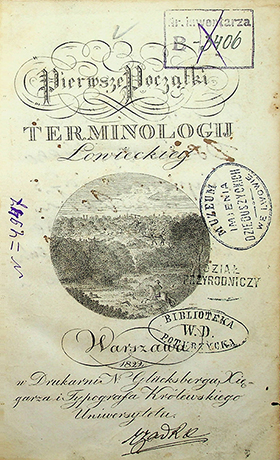 Nr. inwentarza
B-8406
Pierwsze Początki
TERMINOLOGII
Łowieckiey
MUZEUM
IMIENIA
DZIEDUSZYCKICH
WE LWOWIE
DZIAŁ
PRZYRODNICZY
BIBLIOTEKA
W.D.
POTURZYCKA
Warszawa
1822.
w Drukarni N. Glücksberga, Xię-
garza i Typografa Królewskiego
Uniwersytetu.
Rzadkie